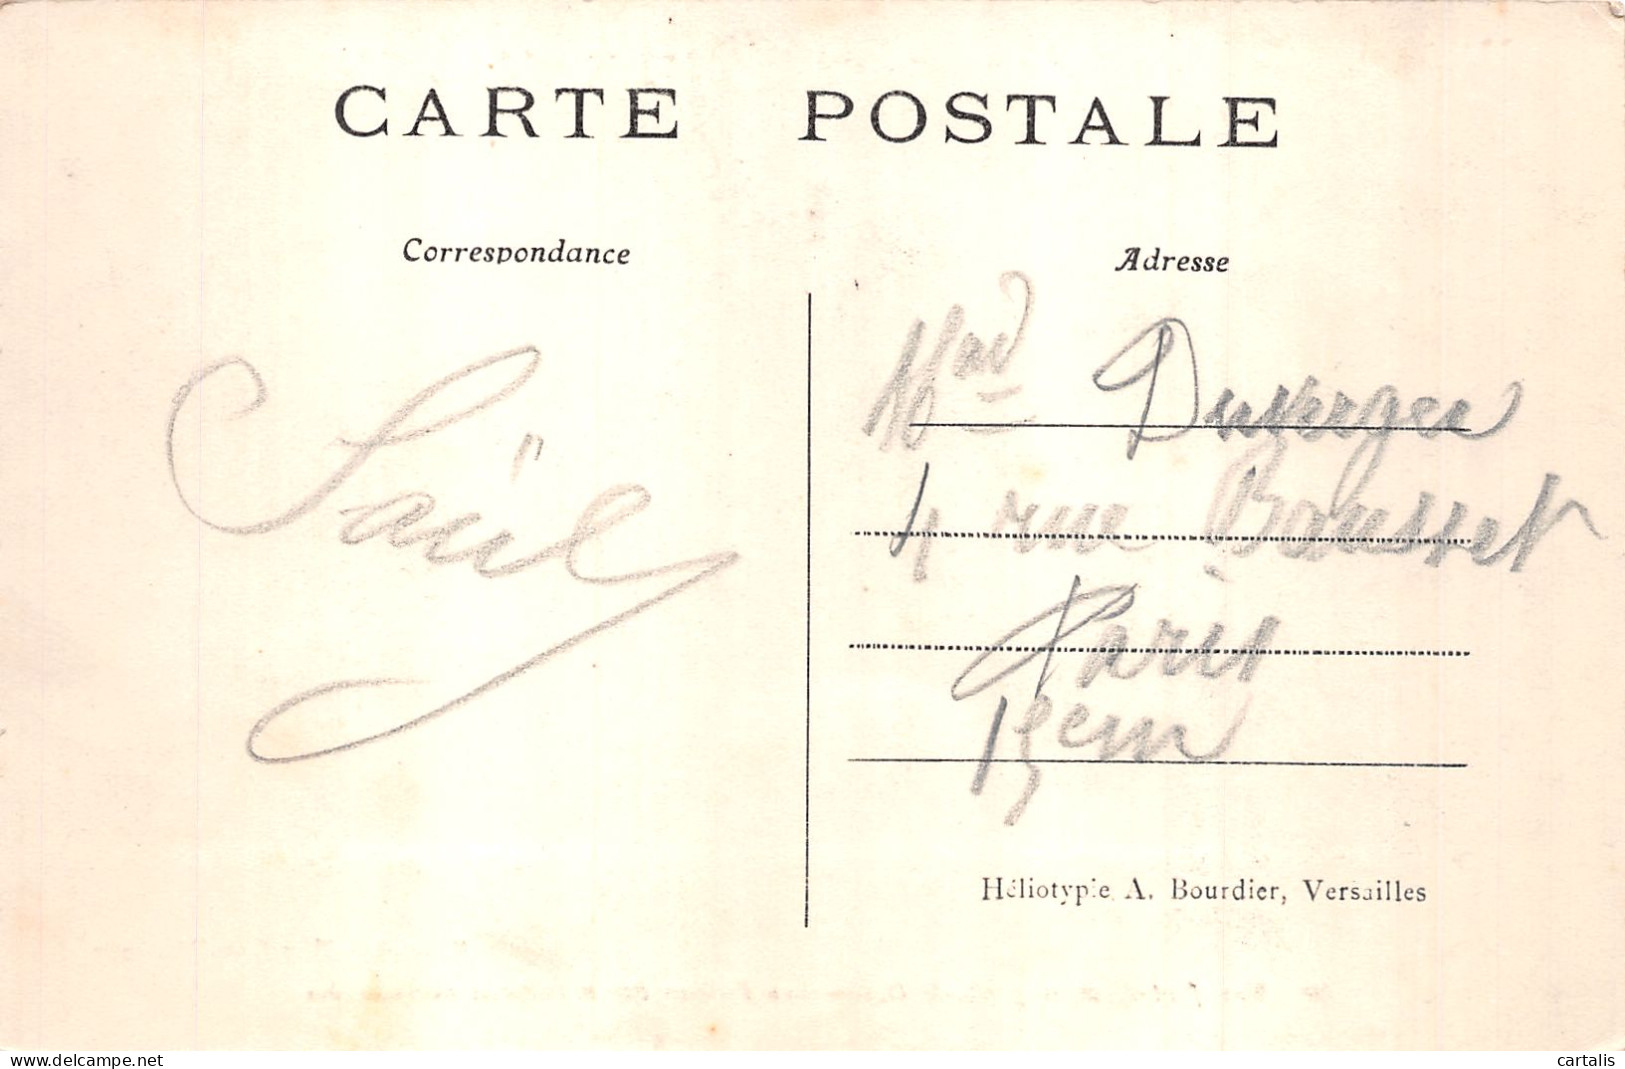 CARTE POSTALE
Correspondance
Adresse
Saül
Mme Duverger
4 rue Bausset
Paris
15em
Héliotypie A. Bourdier, Versailles
delcampe.net
cartalis